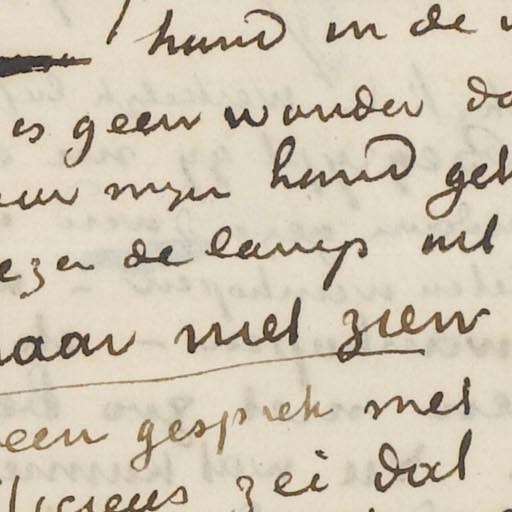 hand in de
is geen wonder da
mijn hand geh
ezen de lamp uit
haar niet zien
een gesprek met
zei dat